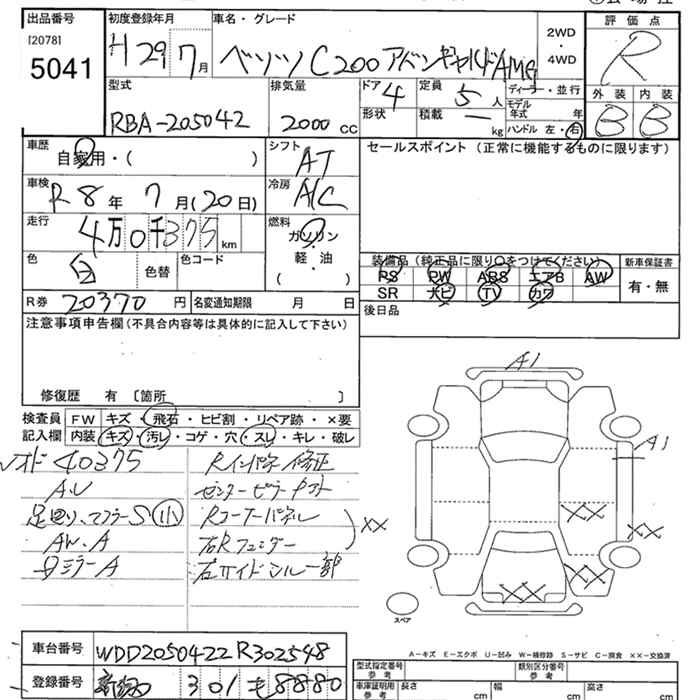 出品番号 初度登録年月 車名・グレード 評価点
[2078]
5041
H 29 7月 ベンツ C200 アバンギャルド AMG
2WD・4WD
R
型式 RBA-205042
排気量 2000 CC
ドア 4
定員 5人
形状 積載 — kg
ディーラー・並行
モデル年式 年
ハンドル 左・右
外装 内装
B B
車歴 自家用・( )
シフト AT
セールスポイント (正常に機能するものに限ります)
車検 R8年 7月(20日)
冷房 A/C
走行 4万0千375km
燃料 ガソリン・軽・油 ( )
色 白 色替 色コード
R券 20370円 名変通知期限 月 日
装備品 (純正品に限り○をつけてください) 新車保証書
PS PW ABS エアB AW 有・無
SR ナビ TV カワ
後日品
注意事項申告欄(不具合内容等は具体的に記入して下さい)
修復歴 有 〔箇所 〕
検査員記入欄
FW キズ・飛石・ヒビ割・リペア跡・×要
内装 キズ・汚レ・コゲ・穴・スレ・キレ・破レ
40375 Rインパネ修正
A.U センターピラー
足回り、マフラーS小 Rコーナーパネル
AW.A 右Rフェンダー XX
ミラーA 右サイドシル一部
A1
A1
XX
XX
XX
XX
スペア
A-キズ E-エクボ U-凹み W-補修跡 S-サビ C-腐食 ××-交換済
車台番号 WDD2050422R302548
登録番号 301 も 8880
型式指定番号 参考 類別区分番号 参考
車庫証明用 参考 長さ cm 幅 cm 高さ cm